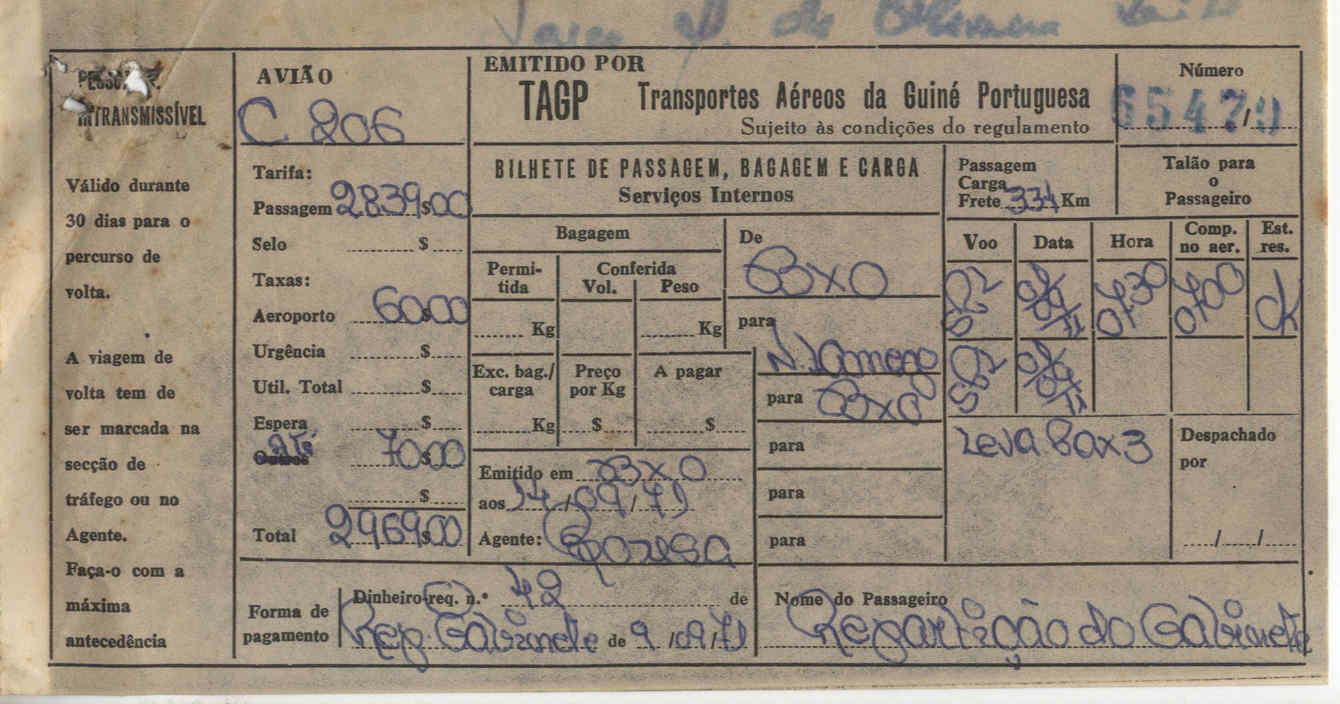 de Oliveira
PESSOAL E
INTRANSMISSÍVEL
Válido durante
30 dias para o
percurso de
volta.
A viagem de
volta tem de
ser marcada na
secção de
tráfego ou no
Agente.
Faça-o com a
máxima
antecedência
AVIÃO
C 206
Tarifa:
Passagem 2839$00
Selo $
Taxas:
Aeroporto 60$00
Urgência $
Util. Total $
Espera $
Outros 70$00
$
Total 2969$00
EMITIDO POR
TAGP Transportes Aéreos da Guiné Portuguesa
Sujeito às condições do regulamento
Número
65479
BILHETE DE PASSAGEM, BAGAGEM E CARGA
Serviços Internos
Passagem
Carga
Frete 334 Km
Talão para
o
Passageiro
Bagagem
Permi-
tida
Conferida
Vol. Peso
Kg Kg
Exc. bag./
carga
Preço
por Kg
A pagar
Kg $ $
De
BXO
para
N. Lamego
para BXO
para
para
para
Voo Data Hora Comp.
no aer. Est.
res.
0730 0700 OK
Leva Box 3
Despachado
por
/ /
Emitido em BXO
aos 14/09/71
Agente:
Forma de
pagamento
Dinheiro-req. n.º 42 de
Rep. Gabinete de 9/09/71
Nome do Passageiro
Repartição do Gabinete